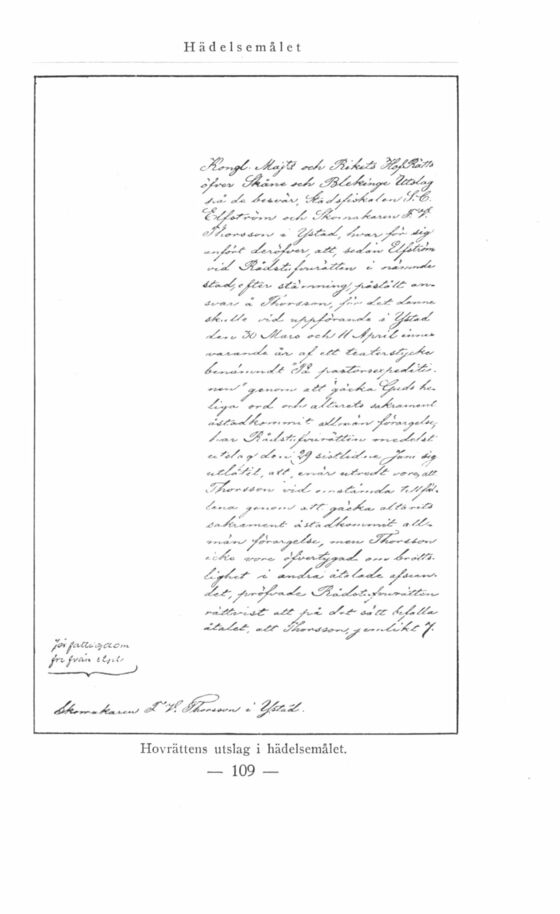 Hädelsemålet
Kongl. Majts och Rikets HofRätts
öfver Skåne och Blekinge Utslag
på de besvär, Stadsfiskalen S. C.
Elfström och Skomakaren F. V.
Thorsson i Ystad, hvar för sig
anfört deröfver, att, sedan Elfström
vid Rådstufvurätten i nämnde
stad, efter stämning, påstått an-
svar å Thorsson, för det denne
skulle vid uppförande i Ystad
den 30 Mars och 11 April inne-
varande år af ett teaterstycke
benämndt "På pastorsexpediti-
onen" genom att gäcka Guds he-
liga ord och altarets sakrament
åstadkommit allmän förargelse,
har Rådstufvurätten medelst
utslag den 29 sistledne Juni sig
utlåtit, att, enär utredt vore, att
Thorsson vid omstämda tillfäl-
lena genom att gäcka altarets
sakrament åstadkommit all-
män förargelse, men Thorsson
icke vore öfvertygad om brotts-
lighet i andra åtalade afseen-
det, pröfvade Rådstufvurätten
rättvist att på det sätt bifalla
åtalet, att Thorsson, jemlikt 7.
för fattigdom
fri från
Skomakaren F. V. Thorsson i Ystad.
Hovrättens utslag i hädelsemålet.
— 109 —